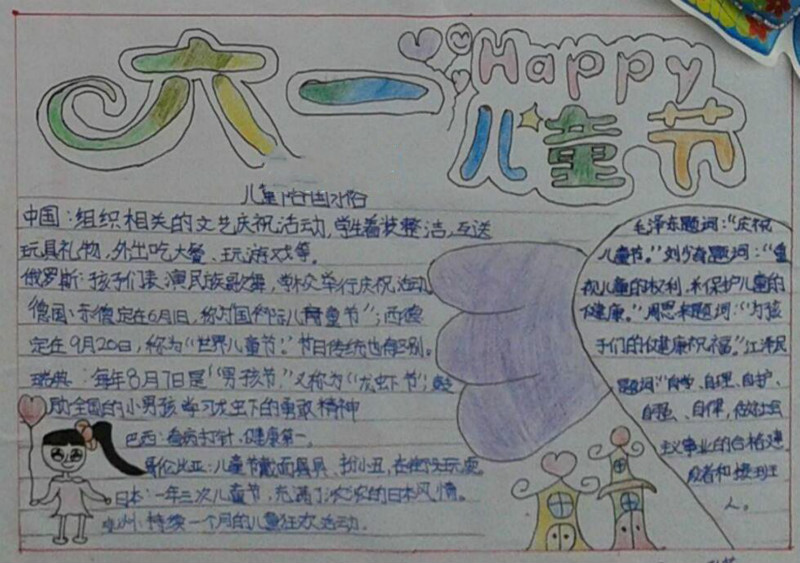 六一
Happy
儿童节
儿童节各国习俗
中国：组织相关的文艺庆祝活动，学生着装整洁，互送
玩具礼物，外出吃大餐、玩游戏等。
俄罗斯：孩子们表演民族歌舞，学校举行庆祝活动
德国：东德定在6月1日，称为"国际儿童节"；西德
定在9月20日，称为"世界儿童节。"节日传统也有区别。
瑞典：每年8月7日是"男孩节，"又称为"龙虾节"；
励全国的小男孩学习龙虾的勇敢精神
巴西：看病打针，健康第一。
哥伦比亚：儿童节戴面具，扮小丑，在街头玩耍。
日本：一年三次儿童节，充满了浓浓的日本风情。
洲：持续一个月的儿童狂欢活动.
毛泽东题词："庆祝
儿童节。"刘少奇题词："重
视儿童的权利，和保护儿童的
健康。"周恩来题词："为孩
子们的健康祝福。"江泽民
题词："自学、自理、自护、
自强、自律，做社会
主义事业的合格建
设者和接班
人。